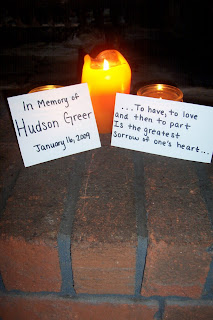 In Memory of
Hudson Greer
January 16, 2009
...To have, to love
and then to part
Is the greatest
sorrow of one's heart...